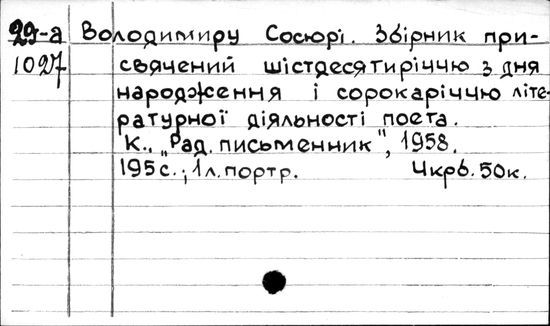 29-а Володимиру Сосюрі. Збірник при-
1027 свячений шістдесятиріччю з дня
народження і сорокаріччю літе-
ратурної діяльності поета.
К., „Рад. письменник", 1958.
195с.; 1л. портр. 4крб. 50к.